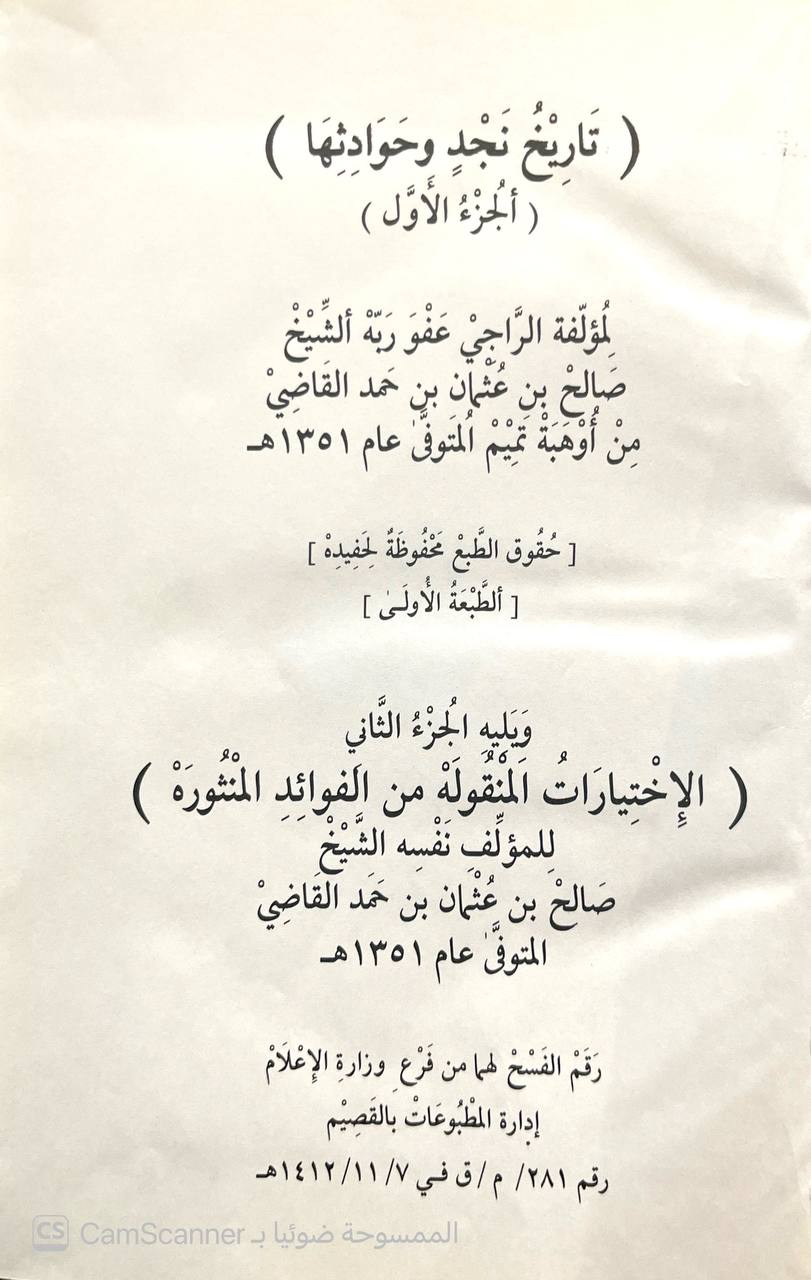 ( تَارِيْخُ نَجْدٍ وحَوَادِثِهَا )
( ألجُزْءُ الأَوَّل )
لِمُؤلّفة الرَّاجِيْ عَفْوَ رَبّهْ ألشَّيْخْ
صَالحْ بن عُثْمان بن حَمد القَاضِيْ
مِنْ أُوْهَبَةْ تَمِيْمْ المُتَوفَّىٰ عام ١٣٥١هـ
[ حُقُوق الطَّبعْ مَحْفُوظَةٌ لِحَفِيدِهْ ]
[ ألطَّبْعَةُ الأُولَـىٰ ]
وَيَلِيهِ الجُزْءُ الثَّانِي
( الإِخْتِيارَاتُ المَنْقُولَهْ من الفوائِدِ المْنْثُورَهْ )
لِلمؤلِّفِ نَفْسِه الشَّيْخْ
صَالحْ بن عُثْمان بن حَمَد القَاضِيْ
المتوفَّىٰ عام ١٣٥١هـ
رَقَمْ الفَسْحْ لهما من فَرْعِ وزارةِ الإِعْلَامْ
إدارة المطْبُوعَاتْ بالقَصِيْم
رقم ٢٨١/ م/ق فـي ١٤١٢/١١/٧هـ
CS CamScanner الممسوحة ضوئيا بـ